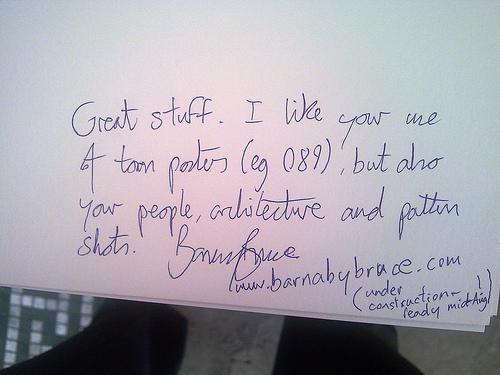 Great stuff. I like your use
of torn posters (eg 089), but also
your people, architecture and pattern
shots. Barnaby Bruce
www.barnabybruce.com
(under
construction-
ready mid-Aug!)